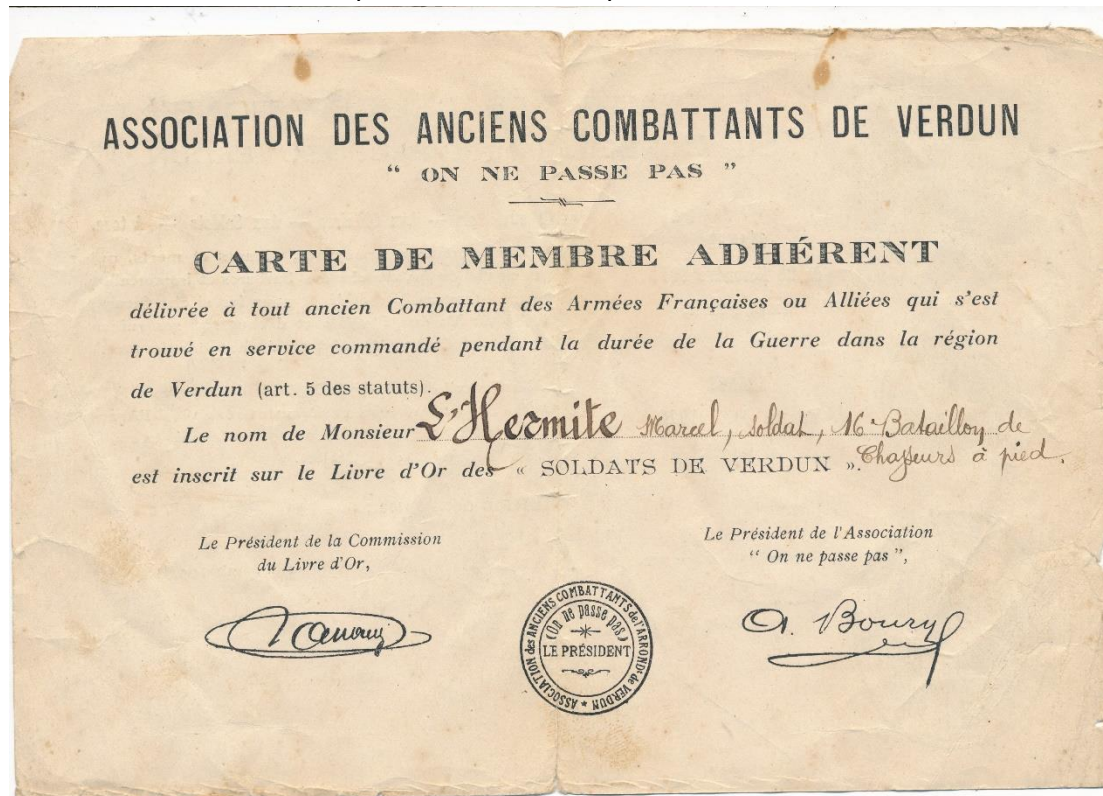 ASSOCIATION DES ANCIENS COMBATTANTS DE VERDUN
“ ON NE PASSE PAS ”
CARTE DE MEMBRE ADHÉRENT
délivrée à tout ancien Combattant des Armées Françaises ou Alliées qui s'est
trouvé en service commandé pendant la durée de la Guerre dans la région
de Verdun (art. 5 des statuts).
Le nom de Monsieur L'Hermite Marcel, soldat, 16e Bataillon de
Chasseurs à pied.
est inscrit sur le Livre d'Or des « SOLDATS DE VERDUN ».
Le Président de la Commission
du Livre d'Or,
Le Président de l'Association
“ On ne passe pas ”,
ASSOCIATION des ANCIENS COMBATTANTS de l'ARROND^t de VERDUN
(On ne passe pas)
LE PRÉSIDENT
A. Boury